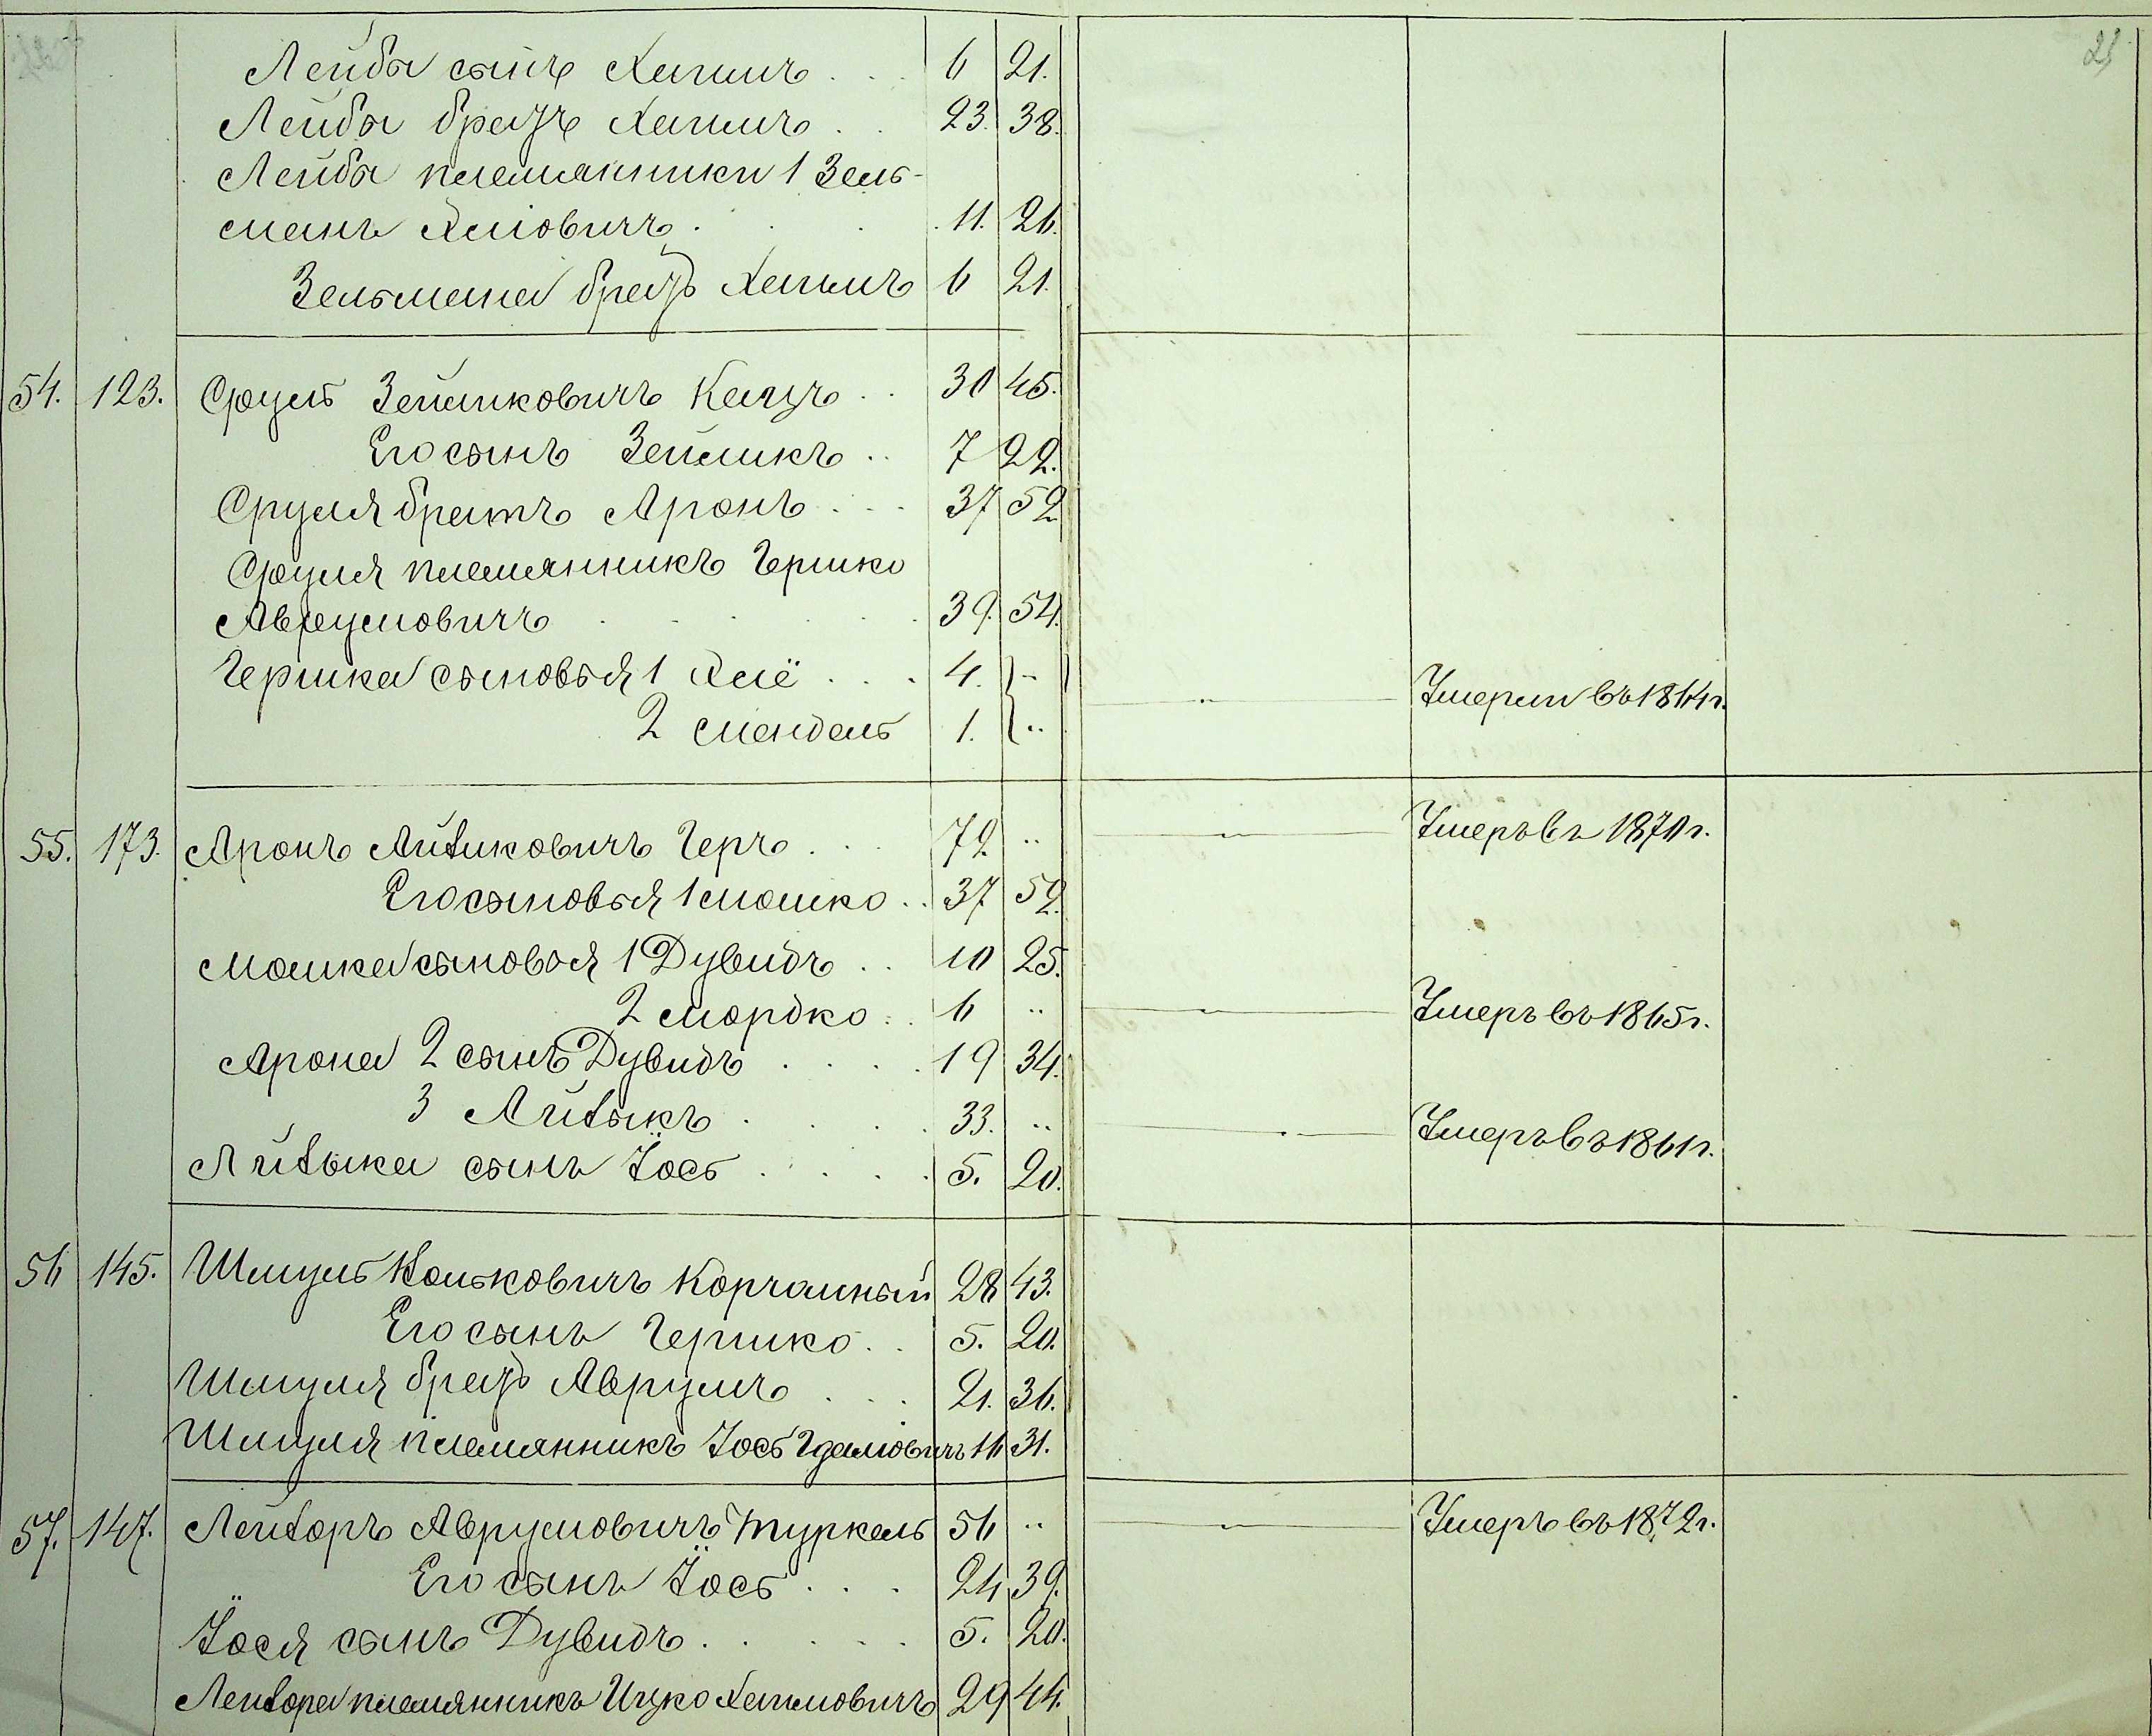 21
Лейбы сынъ Хаимъ . . . 6 21.
Лейбы братъ Хаимъ . . 23. 38.
Лейбы племянники 1 Зель-
манъ Хилёвичъ . . . 11. 26.
Зельмана братъ Хаимъ 6 21.
54. 123. Сруль Зейликовичъ Кацъ . . 30 45.
Его сынъ Зейликъ . . 7 22.
Сруля братъ Аронъ . . . 37 52
Сруля племянникъ Гершко
Аврумовичъ . . . . . 39. 54.
Гершка сыновья 1 Хилё . . . 4. ..
2 Мендель 1. .. Умерли въ 1864 г.
55. 173. Аронъ Айзиковичъ Геръ . . . 72 .. Умеръ въ 1870 г.
Его сыновья 1 Мошко . . 37 52.
Мошка сыновья 1 Дувидъ . . 10 25.
2 Мордко . . 6 .. Умеръ въ 1865 г.
Арона 2 сынъ Дувидъ . . . . 19 34.
3 Айзыкъ . . . . 33. .. Умеръ въ 1861 г.
Айзыка сынъ Іось . . . . 5. 20.
56 145. Шмуль Кольковичъ Корчамный 28 43.
Его сынъ Гершко . . 5. 20.
Шмуля братъ Аврумъ . . . 21. 36.
Шмуля племянникъ Іось Гдаліовичъ 16 31.
57. 147. Лейзоръ Аврумовичъ Туркель 56 .. Умеръ въ 1872 г.
Его сынъ Іось . . . 24 39.
Іося сынъ Дувидъ . . . . . 5. 20.
Лейзора племянникъ Ицко Хаимовичъ 29 44.